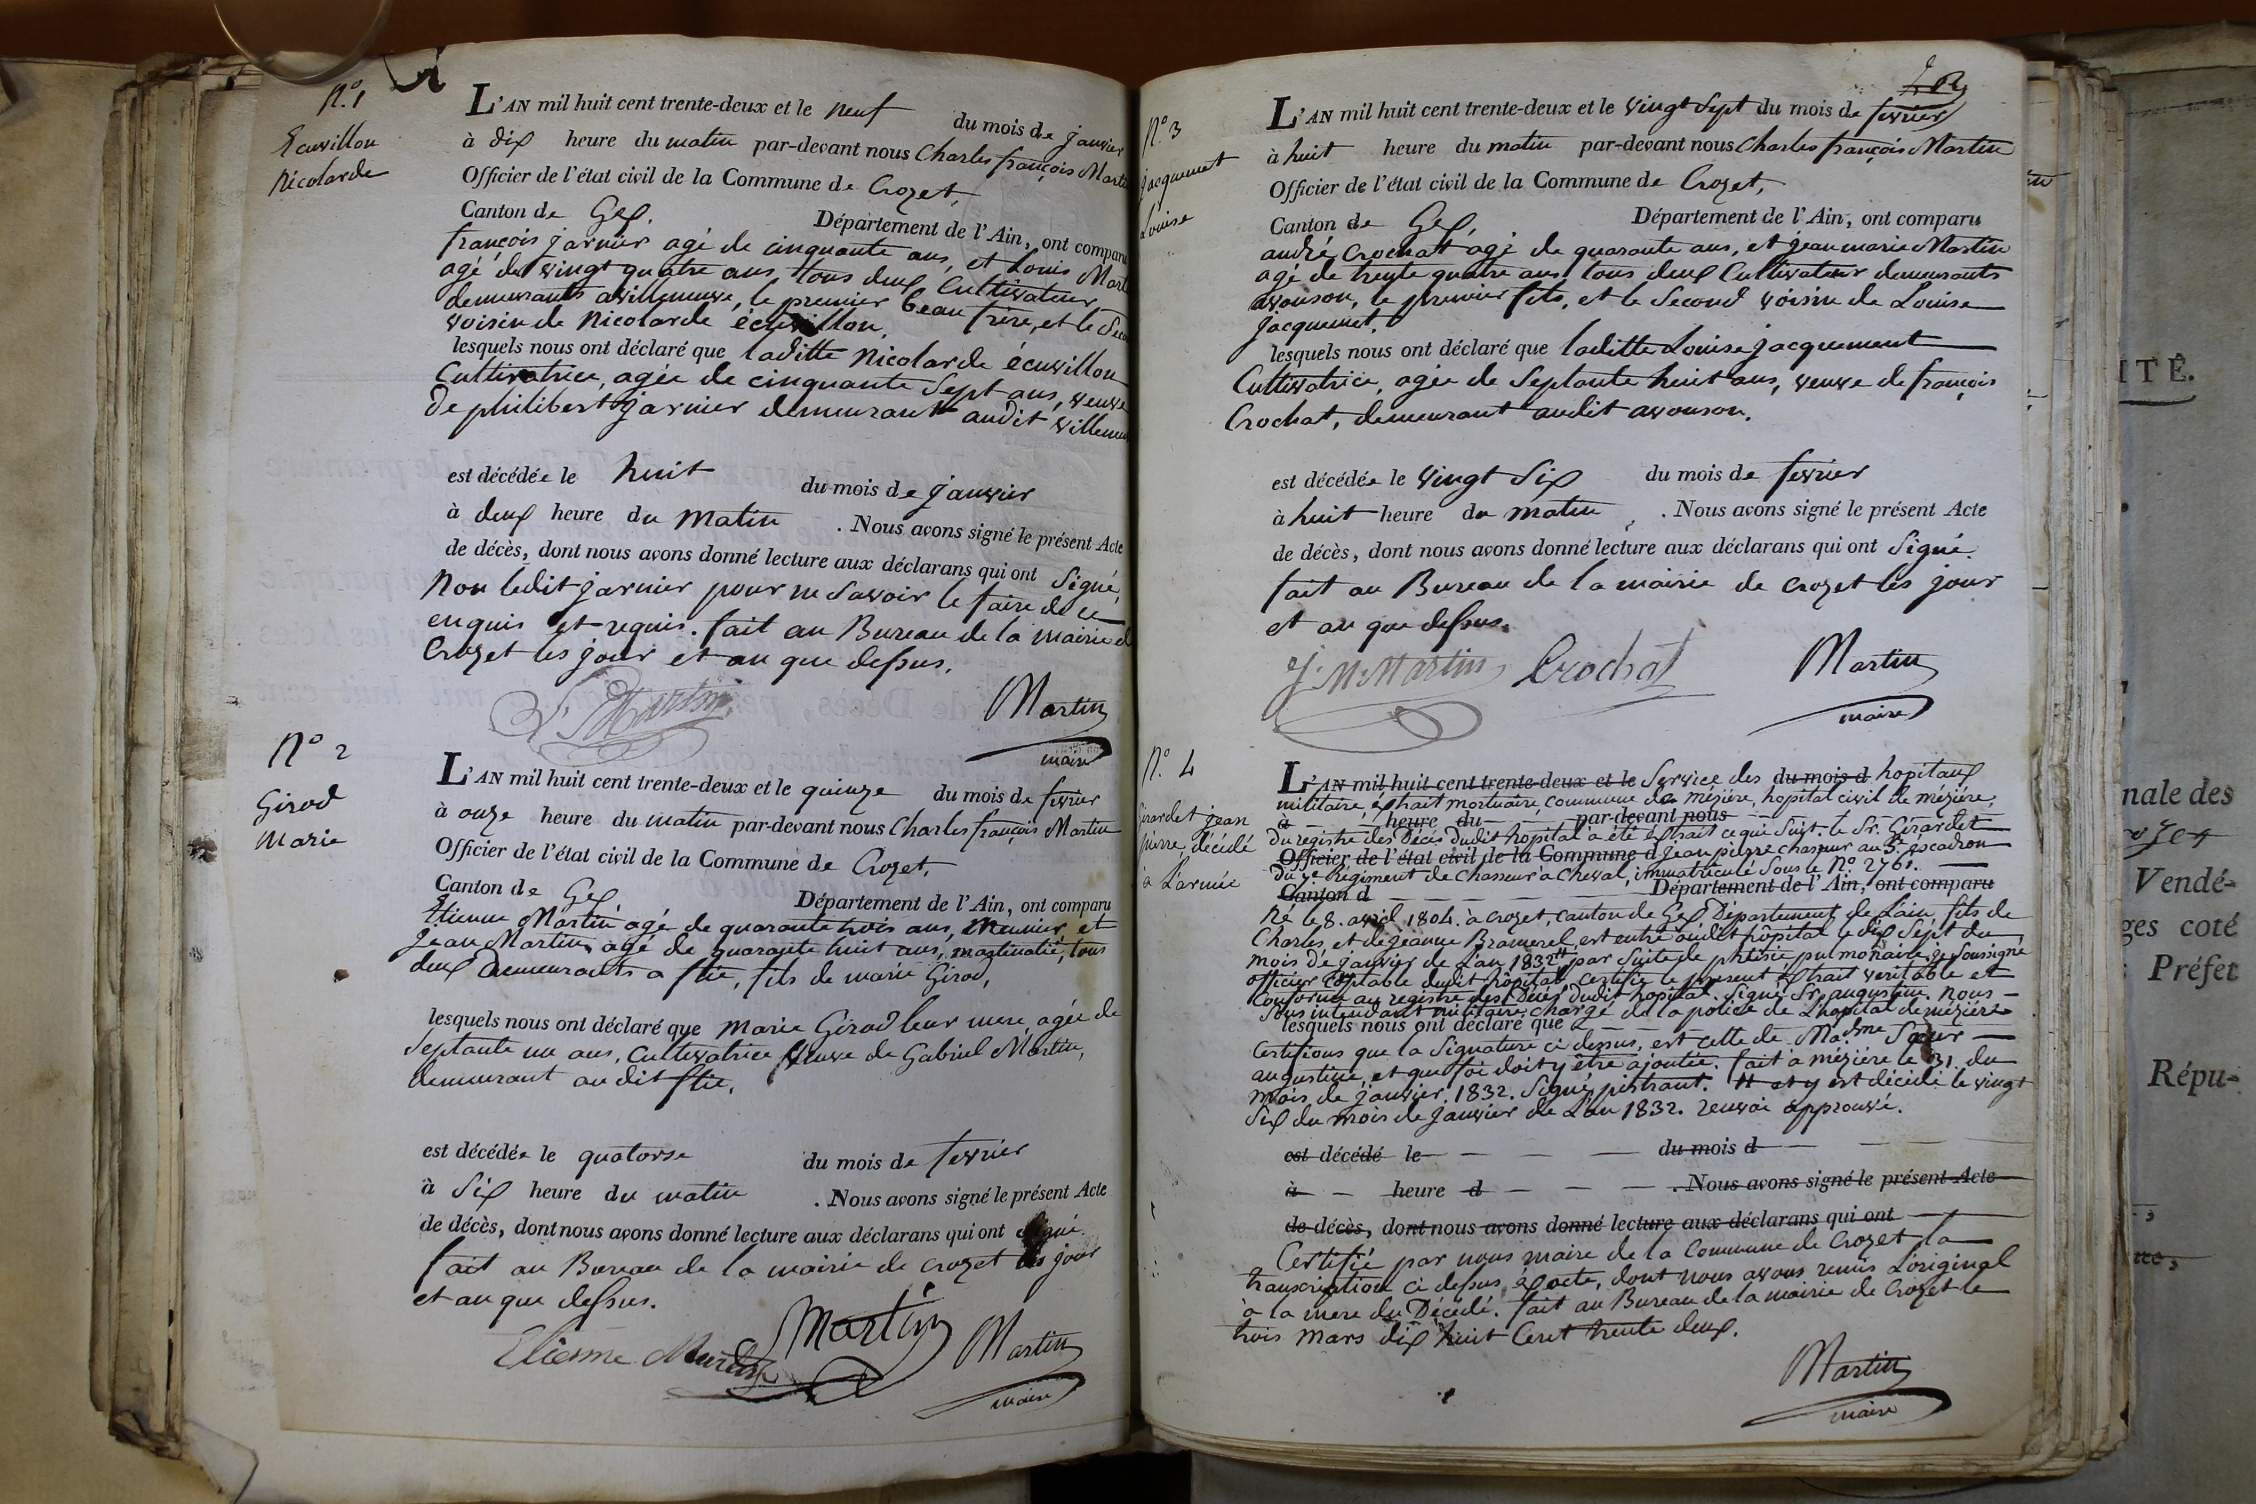 N.° 1
Ecuvillon
Nicolarde
L'AN mil huit cent trente-deux et le neuf du mois de janvier
à dix heure du matin par-devant nous Charles françois Martin
Officier de l'état civil de la Commune de Crozet,
Canton de Gex. Département de l'Ain, ont comparu
françois jarnier agé de cinquante ans, et Louis Mart
agé de vingt quatre ans, tous deux Cultivateur
demeurants a villeneuve, le premier beau frère, et le Seco
voisin de Nicolarde écuvillon,
lesquels nous ont déclaré que laditte Nicolarde écuvillon
Cultivatrice, agée de cinquante Sept ans, veuve
de philibert jarnier demeurant audit villeneu
est décédée le huit du mois de janvier
à deux heure du matin . Nous avons signé le présent Acte
de décès, dont nous avons donné lecture aux déclarans qui ont Signé,
Non ledit jarnier pour ne Savoir le faire de ce
enquis et requis. fait au Bureau de la mairie d
Crozet les jour et an que dessus.
L. Martin Martin
maire
N° 2
Girod
Marie
L'AN mil huit cent trente-deux et le quinze du mois de fevrier
à onze heure du matin par-devant nous Charles françois Martin
Officier de l'état civil de la Commune de Crozet,
Canton de Gex Département de l'Ain, ont comparu
Etienne Martin agé de quarante trois ans, Meunier, et
Jean Martin agé de quarante huit ans, tous
deux demeurants a flie, fils de marie Girod,
lesquels nous ont déclaré que Marie Girod leur mere, agée de
Septante un ans, Cultivatrice veuve de Gabriel Martin,
demeurant audit flie,
est décédée le quatorse du mois de fevrier
à Six heure du matin . Nous avons signé le présent Acte
de décès, dont nous avons donné lecture aux déclarans qui ont Signé.
fait au Bureau de la mairie de crozet les jour
et an que dessus.
Etienne Martin Martin Martin
maire
N° 3
jacquemet
Louise
L'AN mil huit cent trente-deux et le vingt Sept du mois de fevrier
à huit heure du matin par-devant nous Charles françois Martin
Officier de l'état civil de la Commune de Crozet,
Canton de Gex, Département de l'Ain, ont comparu
andré Crochat agé de quarante ans, et jean marie Martin
agé de trente quatre ans, tous deux Cultivateur demeurants
avouson, le premier fils, et le Second voisin de Louise
jacquemet.
lesquels nous ont déclaré que laditte Louise jacquement
Cultivatrice, agée de Septante huit ans, veuve de françois
Crochat, demeurant audit avouson.
est décédée le vingt Six du mois de fevrier
à huit heure du matin , . Nous avons signé le présent Acte
de décès, dont nous avons donné lecture aux déclarans qui ont Signé.
fait au Bureau de la mairie de crozet les jour
et an que dessus.
J. M. Martin Crochat Martin
maire
N.° 4
Girardet jean
pierre, décédé
à L'armée
L'AN mil huit cent trente-deux et le Service des du mois d hopitaux
militaire, éxtrait mortuaire, commune de mézière, hopital civil de mézière,
à heure du par-devant nous
du registre des Décès dudit hopital a été éxtrait ce qui Suit. le Sr. Girardet
Officier de l'état civil de la Commune d jean pierre chasseur au 3e. escadron
du 7e Regiment de Chasseur a cheval, immatriculé Sous le N° 2761.
Canton d Département de l'Ain, ont comparu
Né le 8. avril 1804. à crozet, canton de Gex Département de L'ain, fils de
Charles, et de jeanne Bramerel, est entré audit hôpital le dix Sept du
mois de janvier de L'an 1832 # par Suite de phtisie pulmonaire, je Soussigné
officier comptable dudit hôpital, Certifie le présent éxtrait veritable et
Conforme au registre des Décès dudit hopital. Signé Sr. augustine. Nous
Sous intendant militaire, chargé de la police de L'hopital de mézière
lesquels nous ont déclaré que
Certifions que la Signature ci dessus, est celle de Ma.dme Sœur
augustine, et que foi doit y être ajoutée. fait à mézière le 31. du
mois de janvier. 1832. Signé pistrant. # et y est décédé le vingt
Six du mois de janvier de L'an 1832. renvoi approuvé.
est décédé le du mois d
à heure d . Nous avons signé le présent Acte
de décès, dont nous avons donné lecture aux déclarans qui ont
Certifié par nous maire de la Commune de Crozet la
transcription ci dessus éxacte, dont nous avons remis L'original
à la mere du Décédé. fait au Bureau de la mairie de Crozet le
trois mars dix huit Cent trente deux.
Martin
maire
ITÉ.
nale des
Vendé-
ges coté
Préfet
Répu-